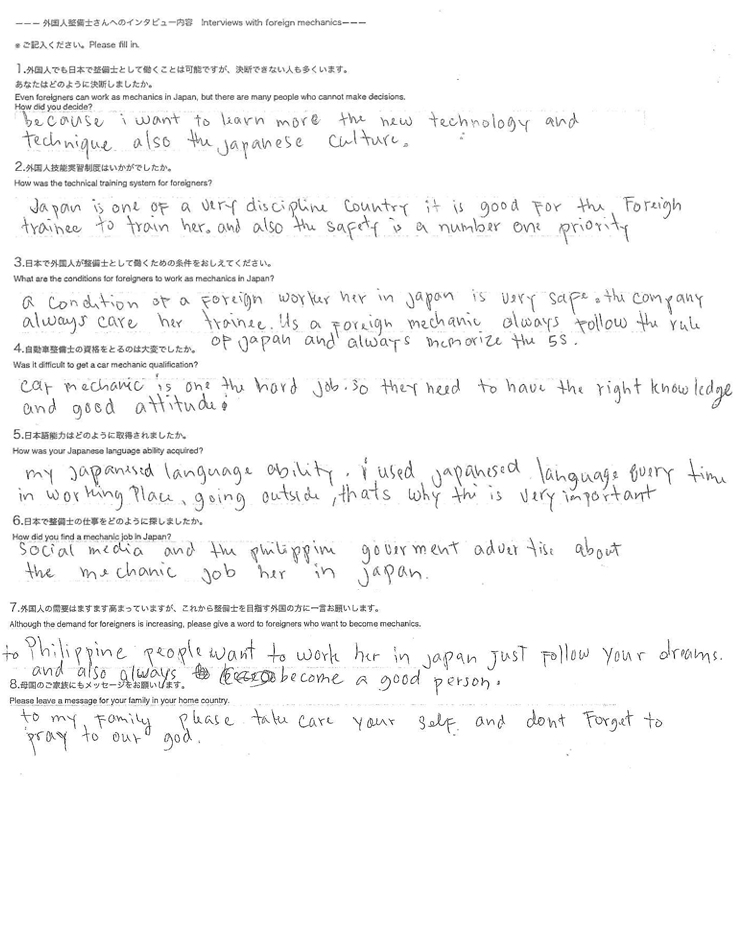 --- 外国人整備士さんへのインタビュー内容 Interviews with foreign mechanics---
＊ご記入ください。Please fill in.
1.外国人でも日本で整備士として働くことは可能ですが、決断できない人も多くいます。
あなたはどのように決断しましたか。
Even foreigners can work as mechanics in Japan, but there are many people who cannot make decisions.
How did you decide?
because i want to learn more the new technology and
technique also the japanese culture.
2.外国人技能実習制度はいかがでしたか。
How was the technical training system for foreigners?
Japan is one of a very discipline country it is good for the Foreigh
trainee to train her. and also the safety is a number one priority
3.日本で外国人が整備士として働くための条件をおしえてください。
What are the conditions for foreigners to work as mechanics in Japan?
a condition of a foreign worker her in japan is very safe. the company
always care her trainee. Us a foreign mechanic always follow the rule
of japan and always memorize the 5S.
4.自動車整備士の資格をとるのは大変でしたか。
Was it difficult to get a car mechanic qualification?
car mechanic is one the hard job. so they need to have the right knowledge
and good attitude.
5.日本語能力はどのように取得されましたか。
How was your Japanese language ability acquired?
my japanesed language ability. i used japanesed language every time
in working place, going outside, thats why thi is very important
6.日本で整備士の仕事をどのように探しましたか。
How did you find a mechanic job in Japan?
social media and the philippine goverment advertise about
the mechanic job her in japan.
7.外国人の需要はますます高まっていますが、これから整備士を目指す外国の方に一言お願いします。
Although the demand for foreigners is increasing, please give a word to foreigners who want to become mechanics.
to Philippine people want to work her in japan just follow your dreams.
and also always become a good person.
8.母国のご家族にもメッセージをお願いします。
Please leave a message for your family in your home country.
to my family please take care your self. and dont forget to
pray to our god.